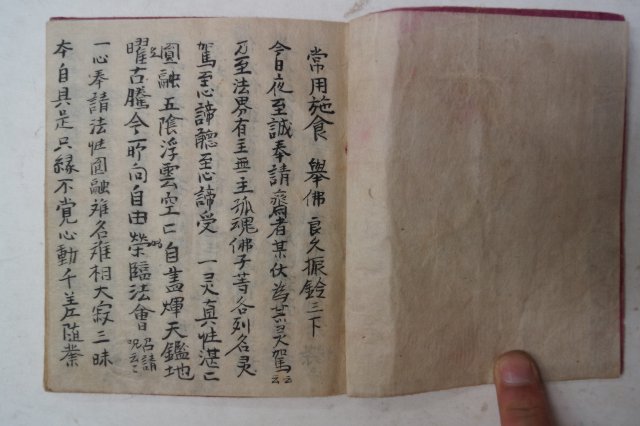 常用施食 擧佛 良久振鈴三下
今日夜至誠奉請齋者某伏為某灵駕云云
乃至法界有主無主孤魂佛子等各列名灵
駕至心諦聽至心諦受 一灵真性湛湛
圓融五陰浮雲空空自盖輝天鑑地
曜古騰今所向自由榮臨法會 召請呪云云
一心奉請法性圓融难名难相大寂三昧
本自具足只縁不覚心動千差随業